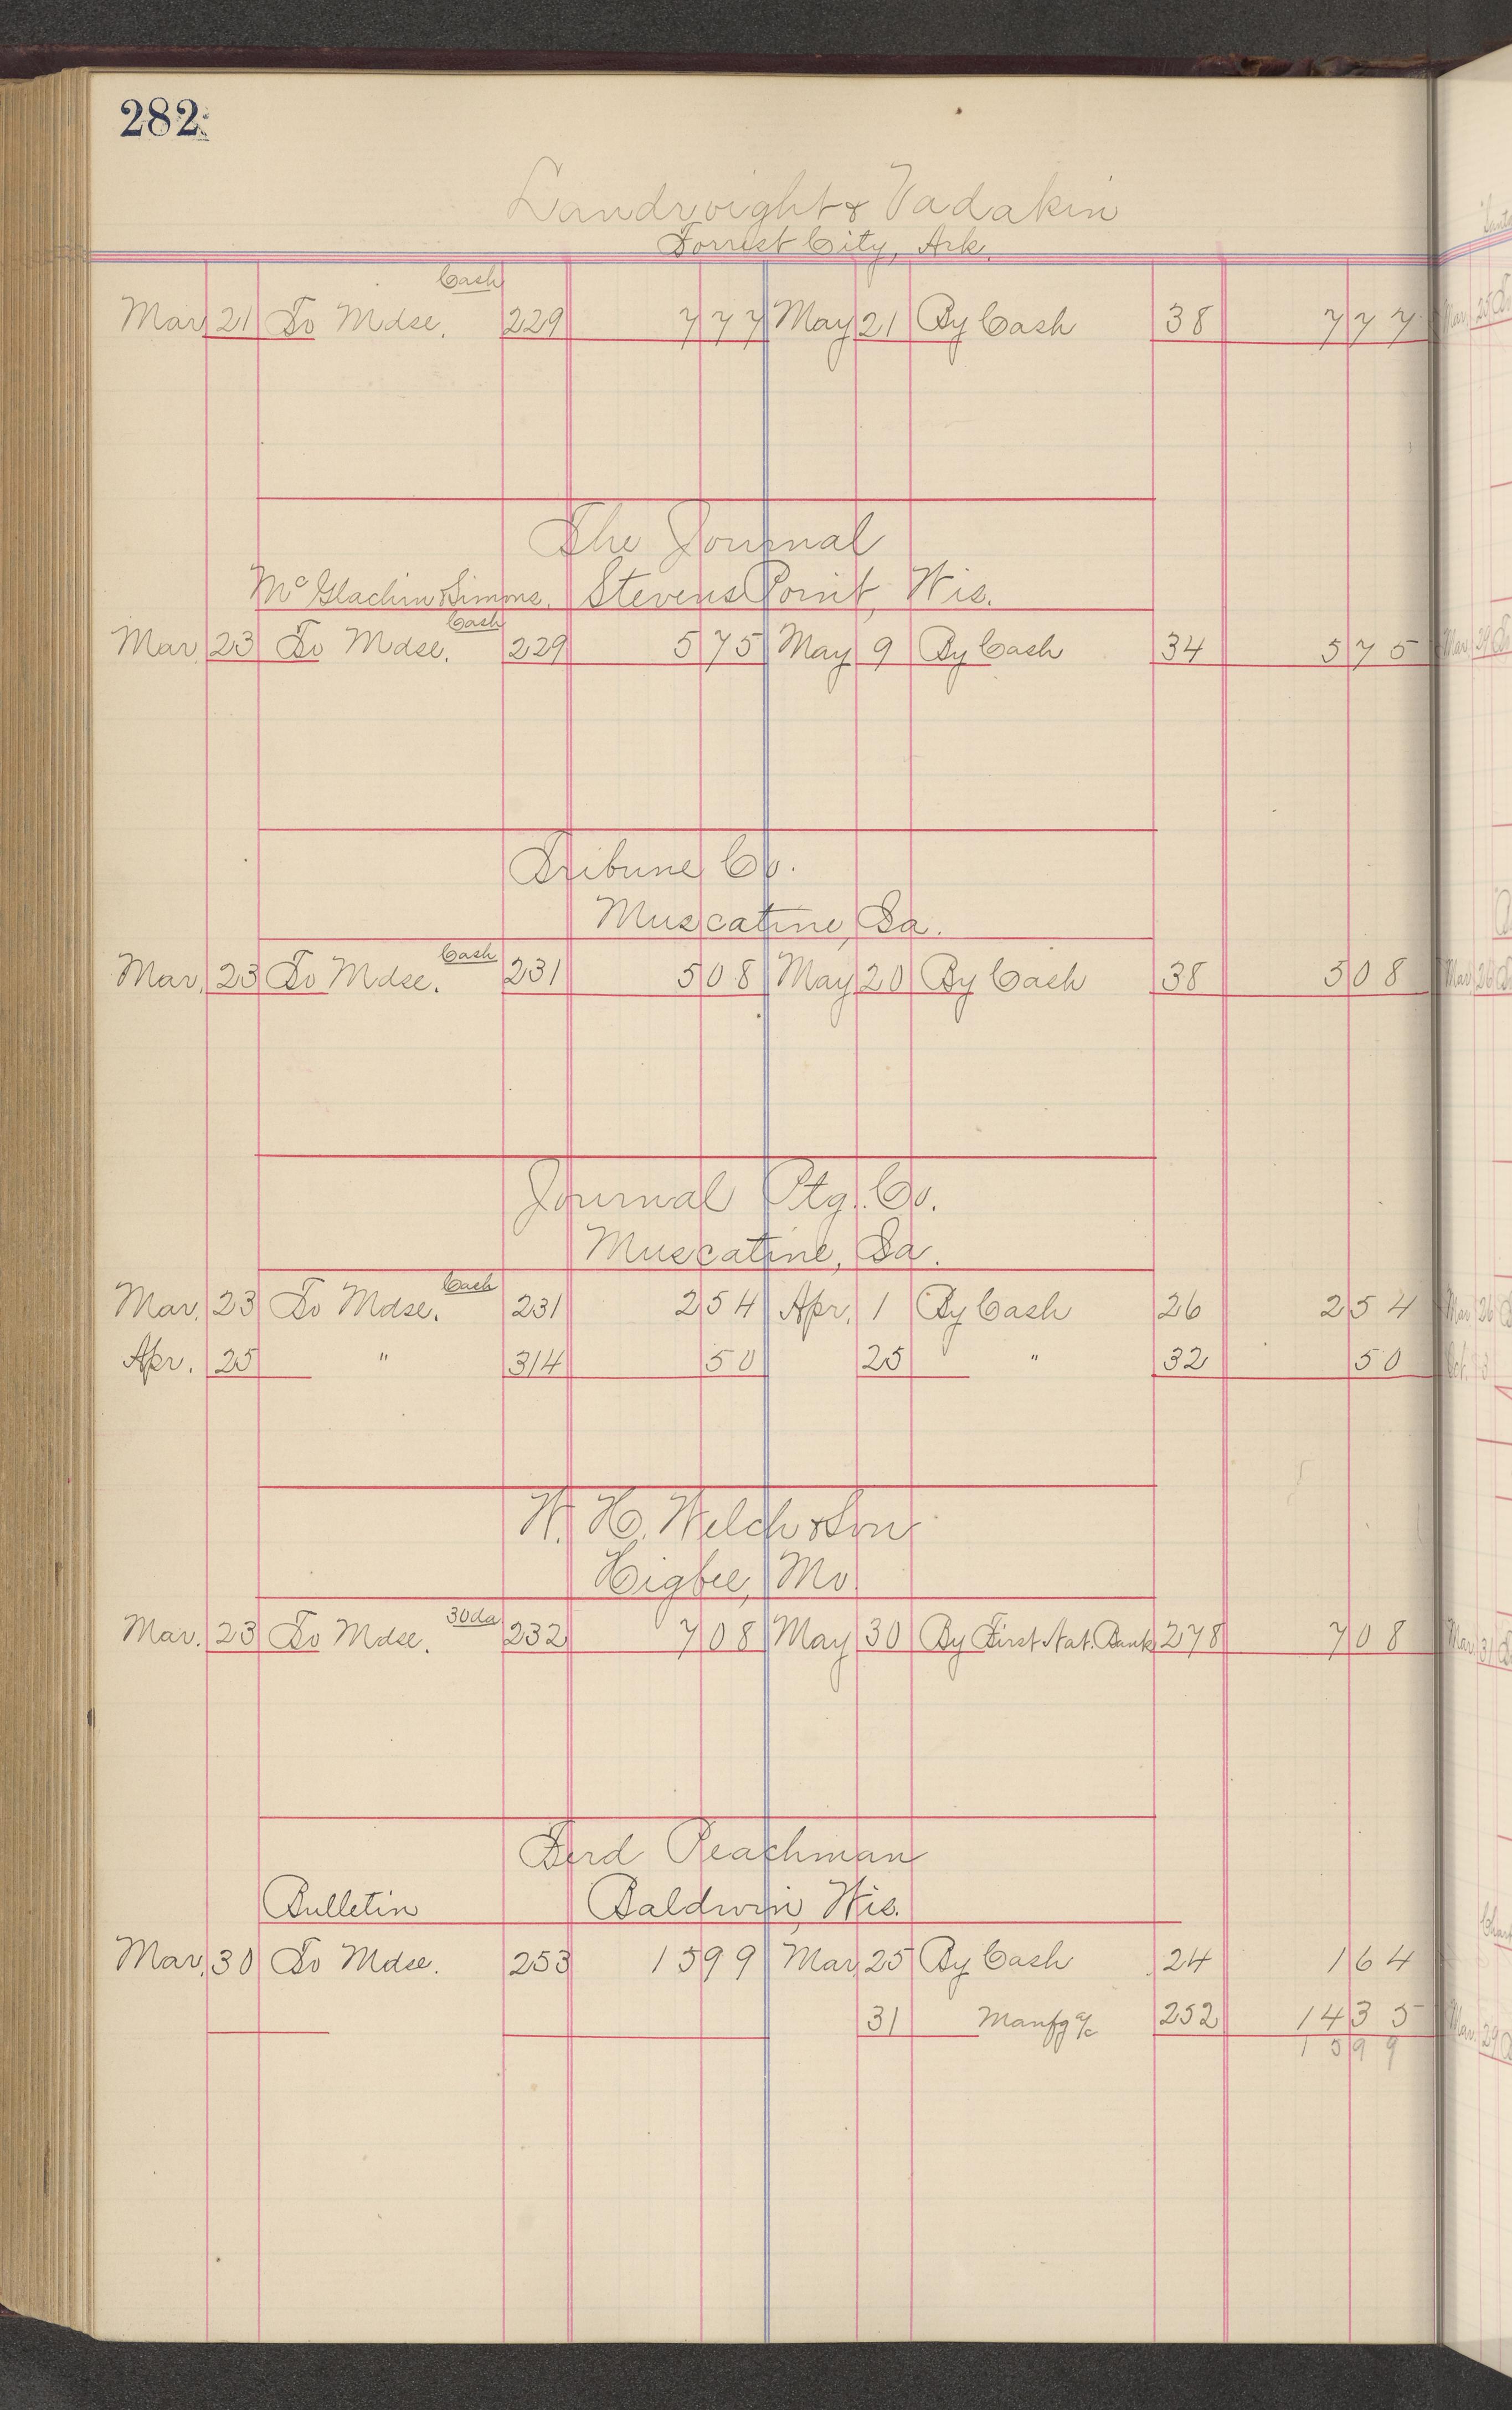 282
Landvoight & Vadakin
Forrest City, Ark.
Cash
Mar 21 To Mdse. 229 7 77 May 21 By Cash 38 7 77
The Journal
McGlachin & Simons. Stevens Point, Wis.
Cash
Mar 23 To Mdse. 229 5 75 May 9 By Cash 34 5 75
Tribune Co.
Muscatine, Ia.
Cash
Mar. 23 To Mdse. 231 5 08 May 20 By Cash 38 5 08
Journal Ptg. Co.
Muscatine, Ia.
Cash
Mar. 23 To Mdse. 231 2 54 Apr. 1 By Cash 26 2 54
Apr. 25 " 314 50 25 " 32 50
W. H. Welch & Son
Higbee, Mo.
30 da
Mar. 23 To Mdse. 232 7 08 May 30 By First Nat. Bank 278 7 08
Ferd Peachman
Bulletin Baldwin, Wis.
Mar. 30 To Mdse. 253 15 99 Mar 25 By Cash 24 1 64
31 Manfg a/c 252 14 35
15 99